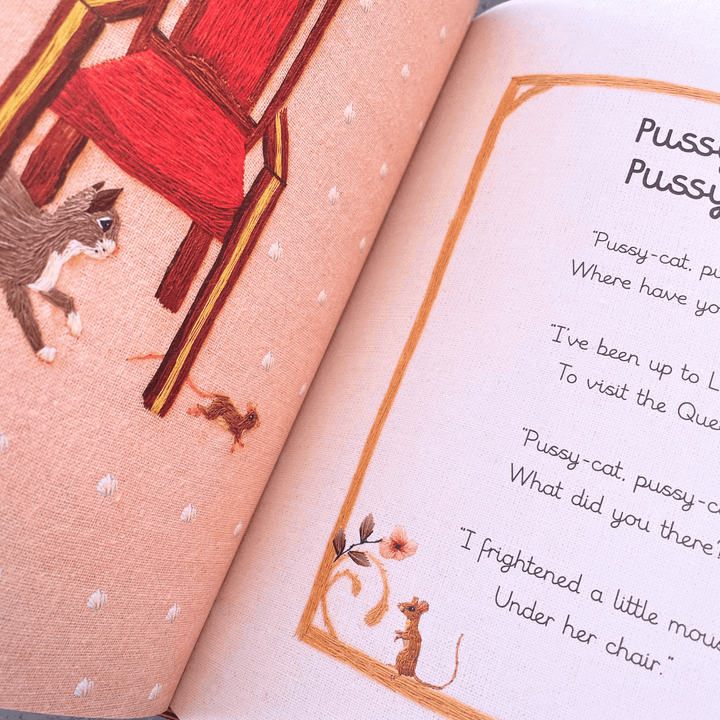 Pussy
Pussy
"Pussy-cat, pu
Where have yo
"I've been up to L
To visit the Quee
"Pussy-cat, pussy-ca
What did you there?
"I frightened a little mous
Under her chair."